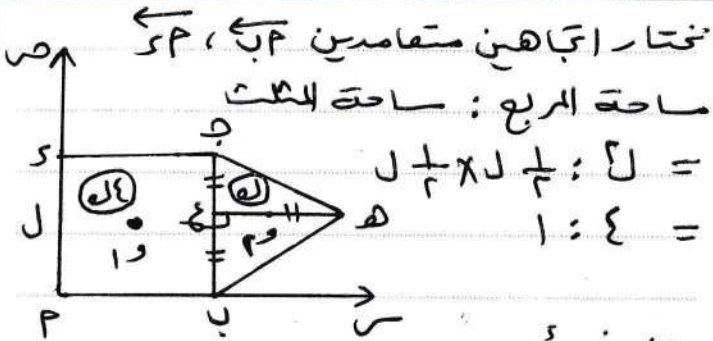 نختار اتجاهين متعامدين م ب ، م د
مساحة المربع : مساحة المثلث
= ل٢ : ١/٢ ل × ١/٢ ل
= ٤ : ١
ص
د
ج
٤ك
ك
ل
ع
هـ
و١
و٢
م
ب
س